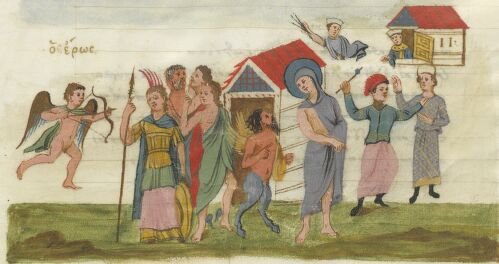 ὁ ἔρως